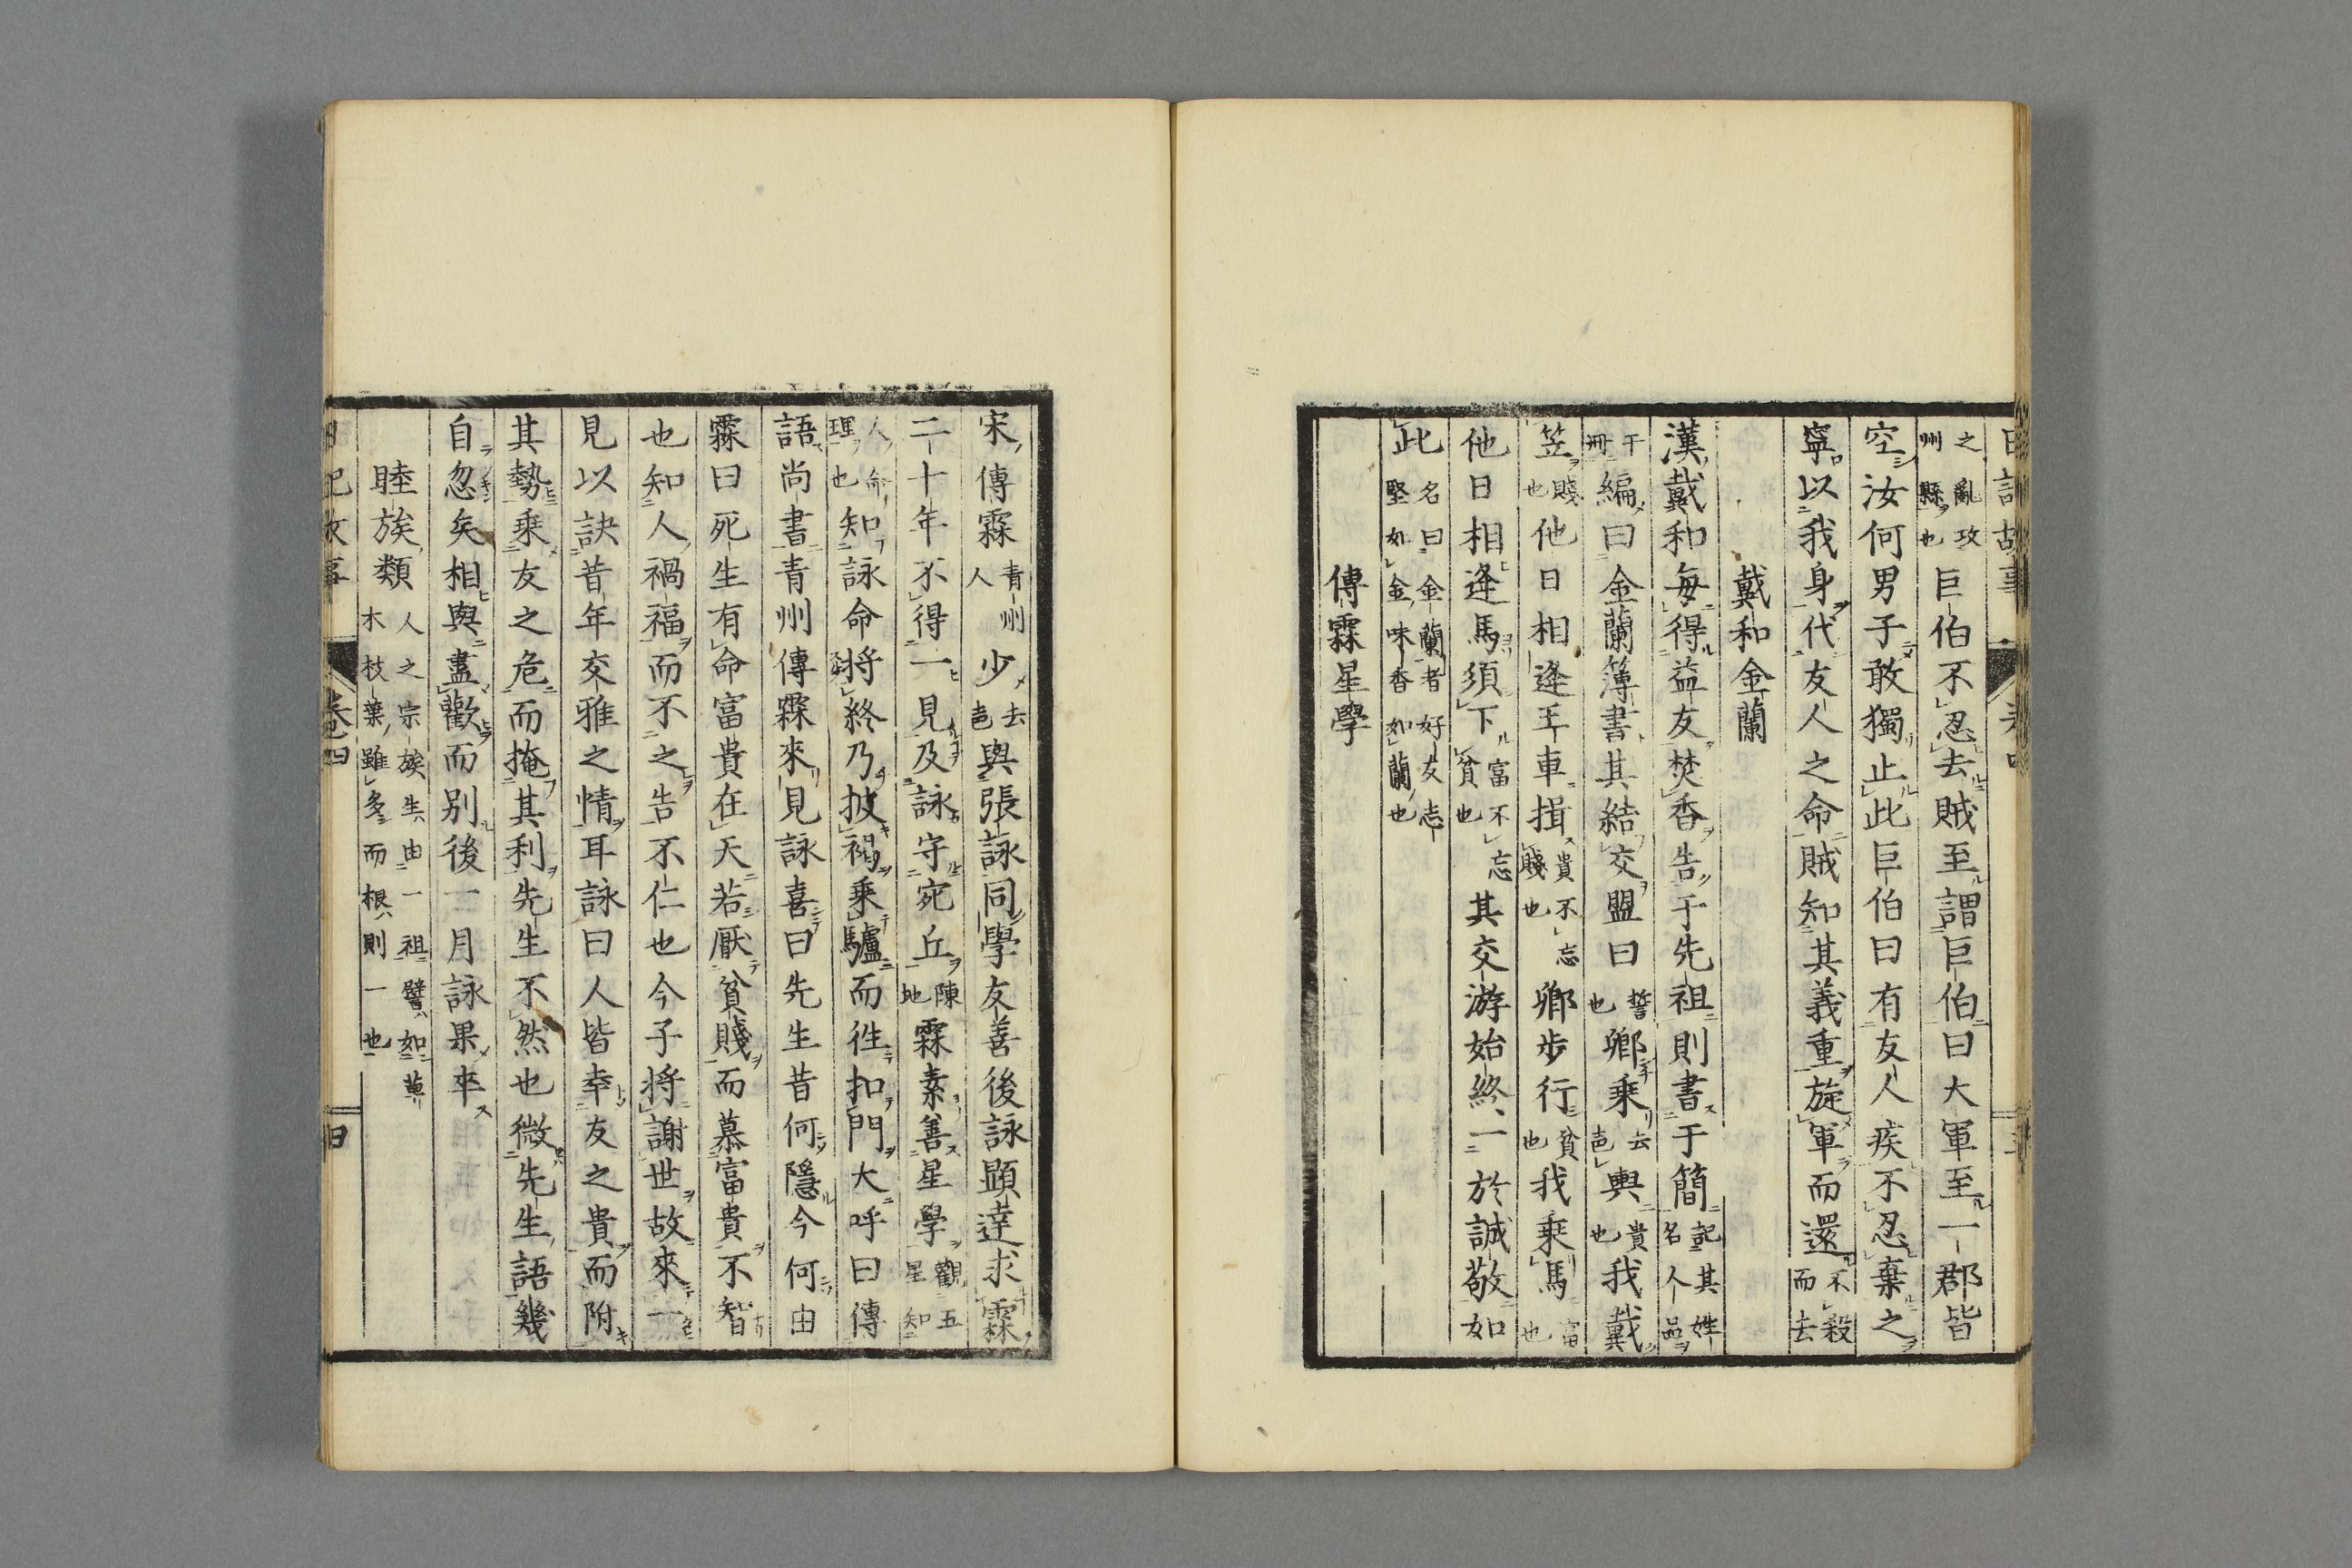 之亂攻州縣也巨伯不忍去賊至謂巨伯曰大軍至一郡皆
空汝何男子敢獨止此巨伯曰有友人疾不忍棄之
寧以我身代友人之命賊知其義重旋軍而還不殺而去
戴和金蘭
漢戴和每得益友焚香告于先祖則書于簡記其姓名人品
于冊編曰金蘭簿書其結交盟曰誓也鄉乘去声輿貴也我戴
笠賤也他日相逢下車揖貴不忘賤也鄉步行貧也我乘馬富也
他日相逢馬須下富不忘貧也其交游始終一於誠敬如
此名曰金蘭者好友志堅如金味香如蘭也
傳霖星學
宋傳霖青州人少去声與張詠同學友善後詠顯達求霖
二十年不得一見及詠守宛丘陳地霖素善星學觀五星知
人命理也知詠命將終乃披褐乘驢而徃扣門大呼曰傳
語尚書青州傳霖來見詠喜曰先生昔何隱今何由
霖曰死生有命富貴在天若厭貧賤而慕富貴不智
也知人禍福而不之告不仁也今子將謝世故來一
見以訣昔年交雅之情耳詠曰人皆幸友之貴而附
其勢乘友之危而掩其利先生不然也微先生語幾
自忽矣相與盡歡而別後一月詠果卒
睦族類人之宗族生由一祖譬如草木枝葉雖多而根則一也
日記故事 卷四